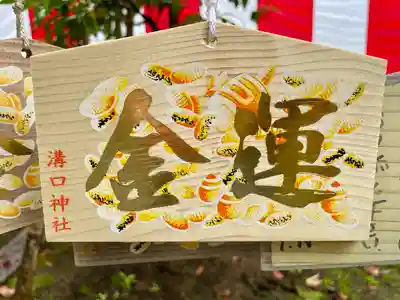 金運
溝口神社